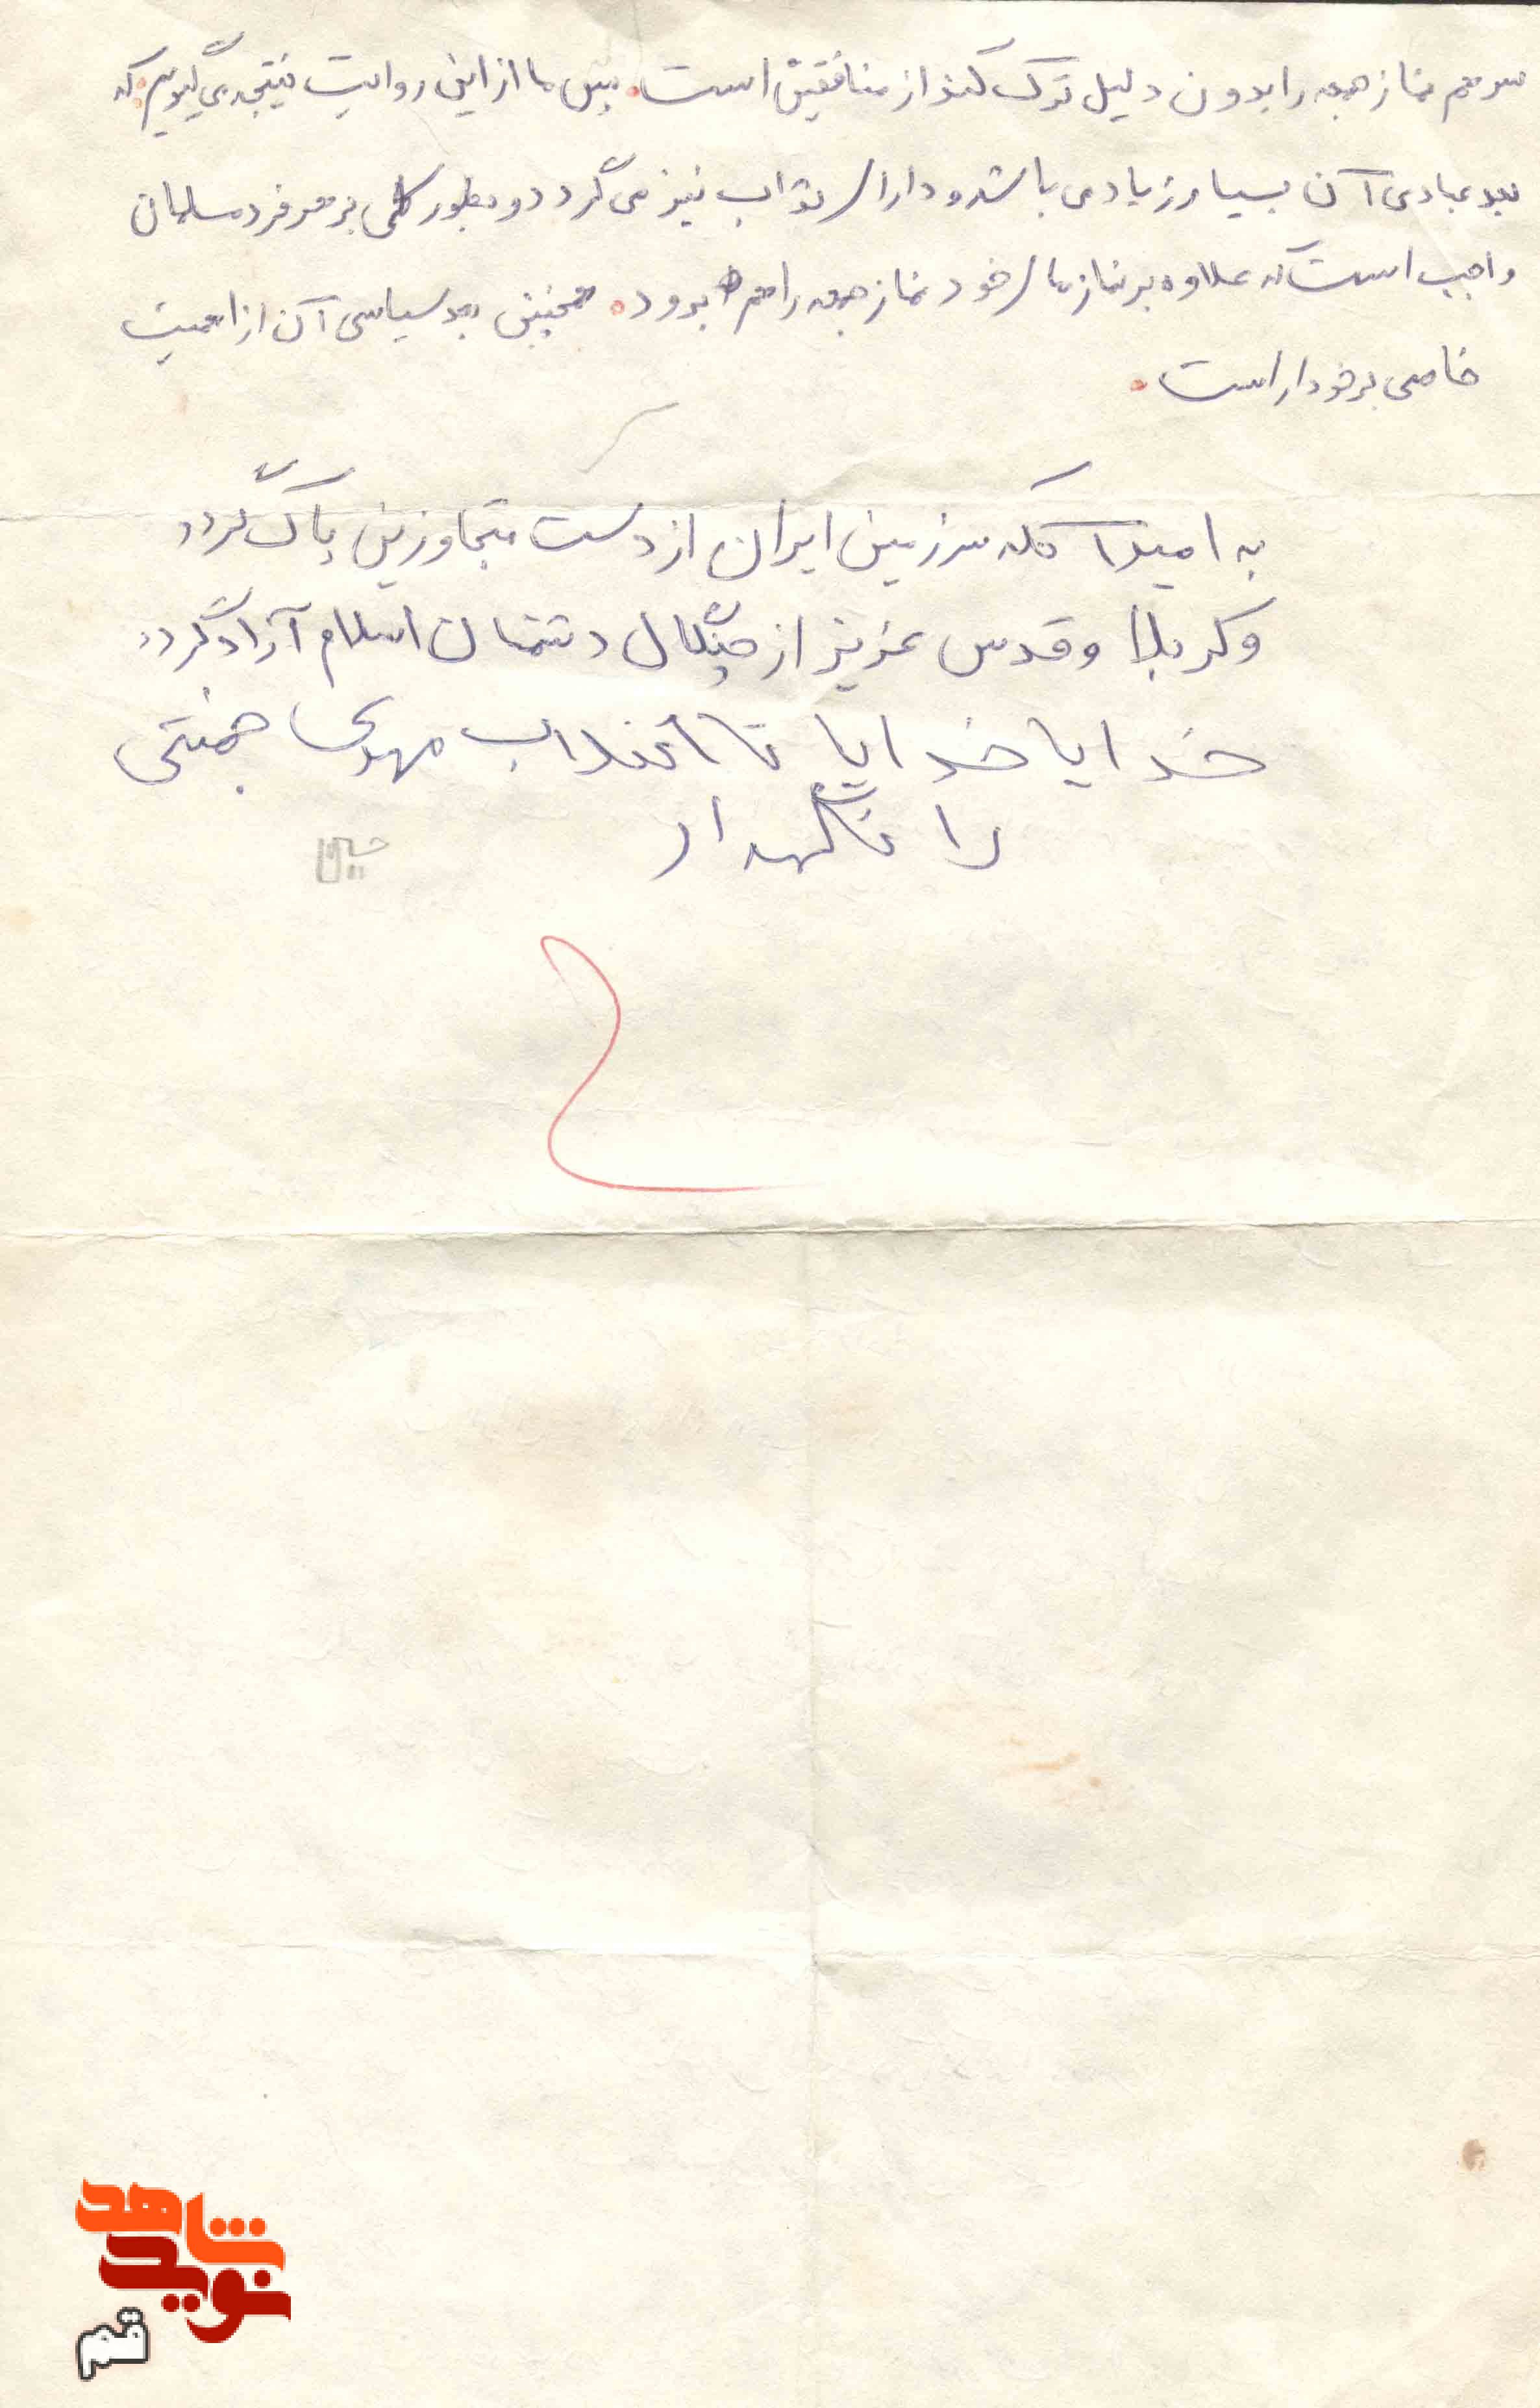 سوم نماز جمعه را بدون دلیل ترک کند از منافقین است. پس ما از این روایت نتیجه می گیریم که
بعد عبادی آن بسیار زیاد می باشد و دارای ثواب نیز می گردد و بطور کلی بر هر فرد مسلمان
واجب است که علاوه بر نمازهای خود نماز جمعه را هم برود. همچنین بعد سیاسی آن از اهمیت
خاصی برخوردار است.
به امید آنکه سرزمین ایران از دست متجاوزین پاک گردد
و کربلا و قدس عزیز از چنگال دشمنان اسلام آزاد گردد
خدایا خدایا تا انقلاب مهدی خمینی
را نگهدار
حسین
شاهد
نوید
قم